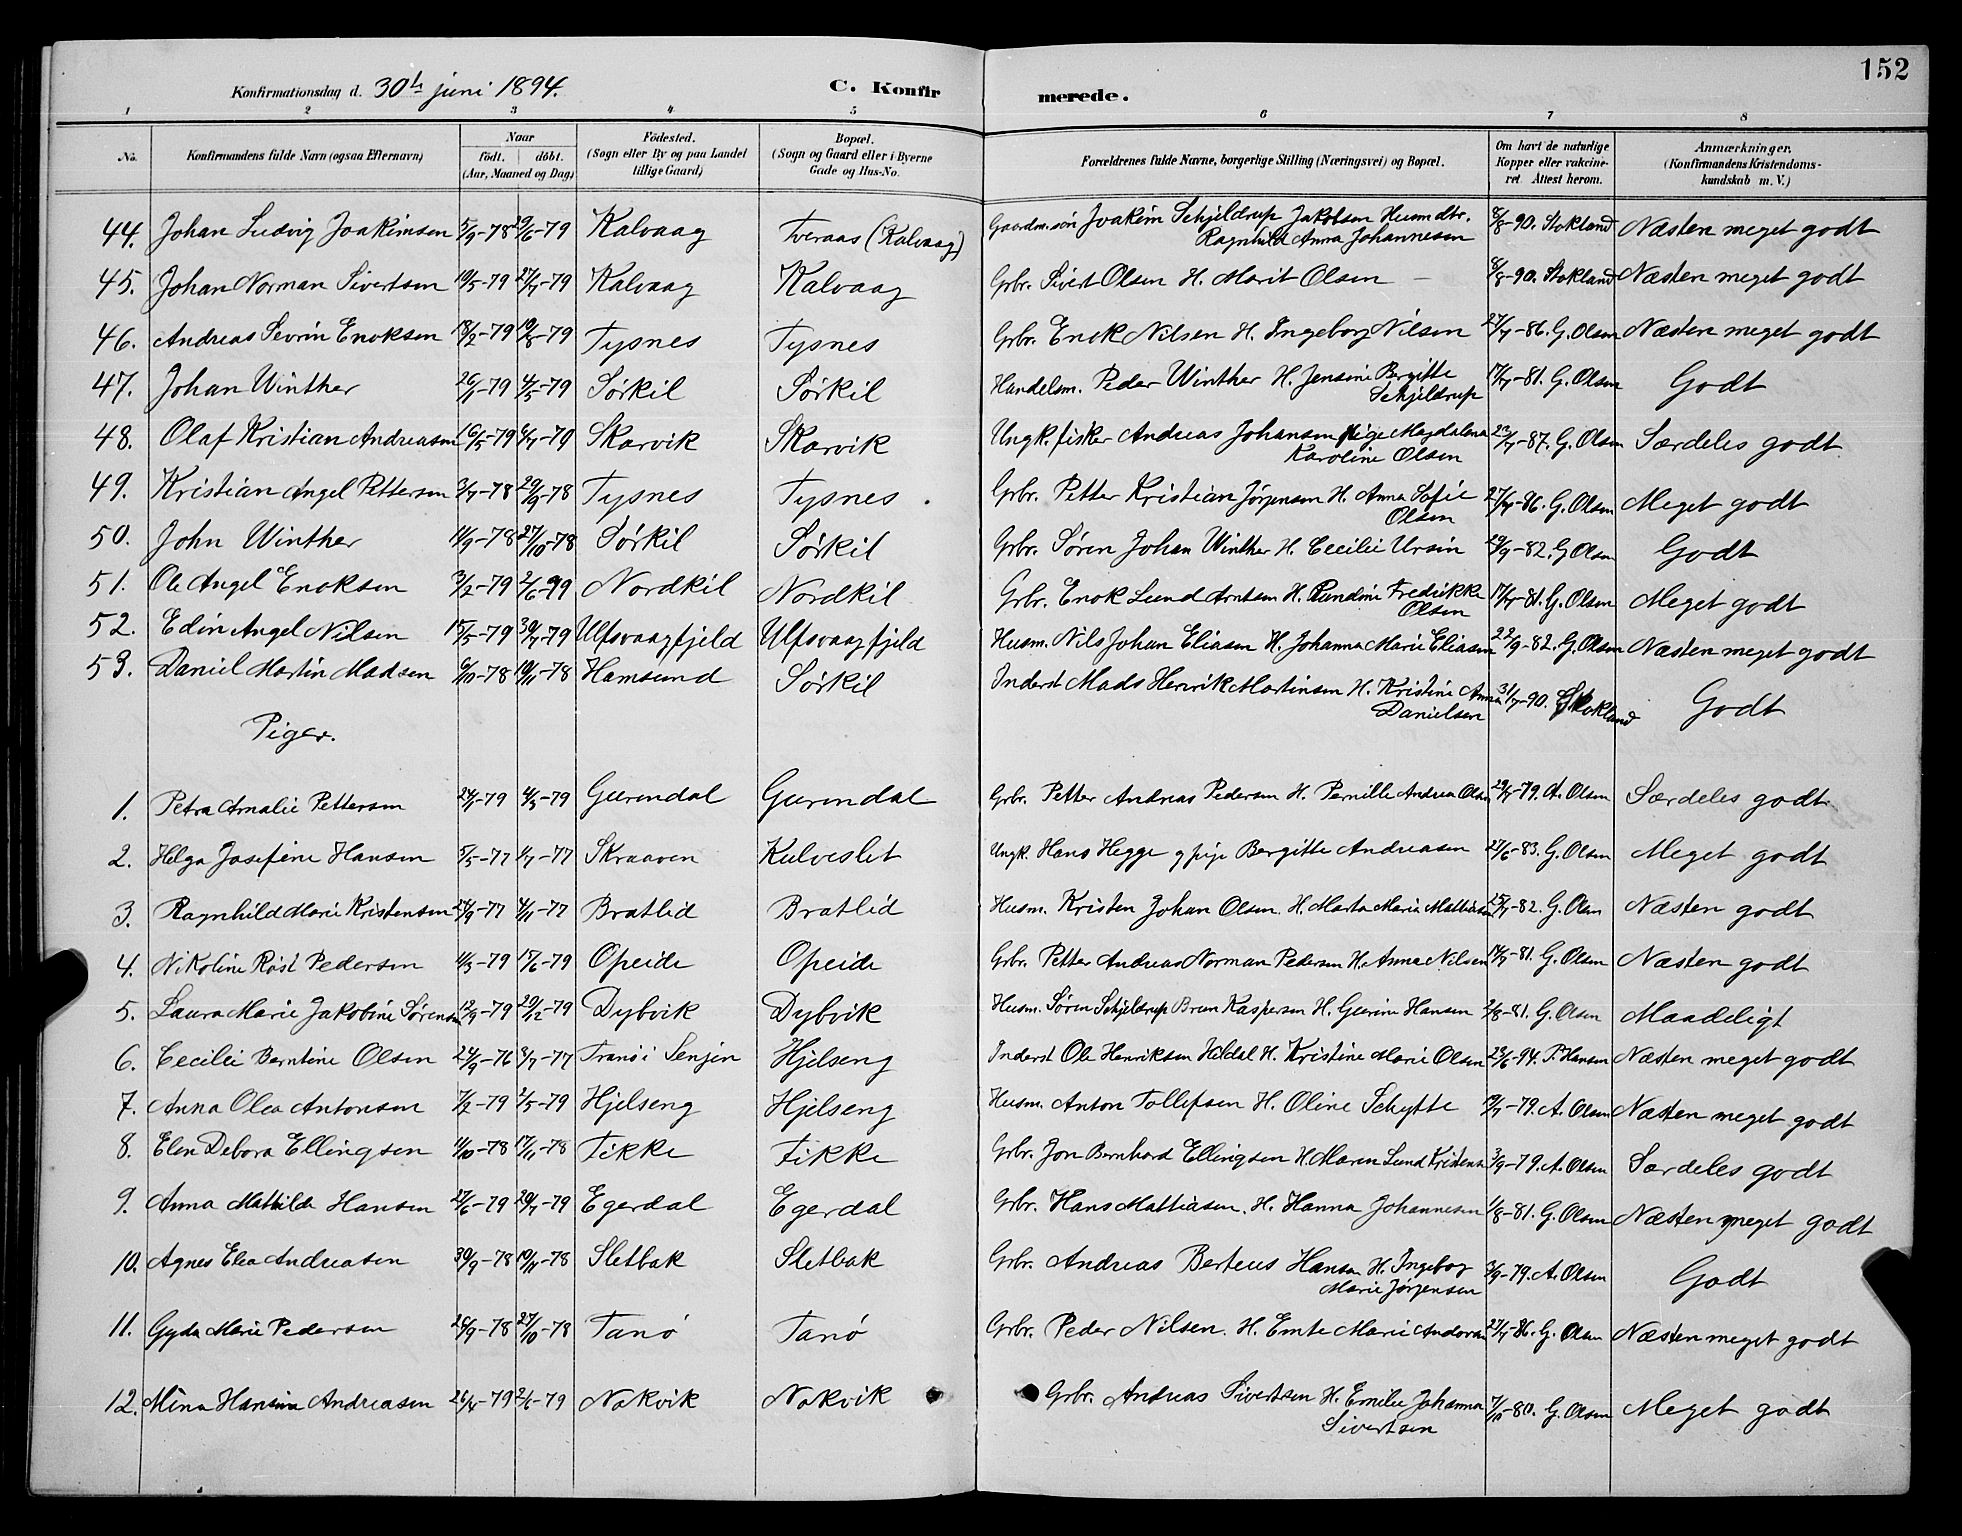 152
Konfirmationsdag d. 30te juni 1894. C. Konfirmerede.
1 2 3 4 5 6 7 8
No. Konfirmandens fulde Navn (ogsaa Efternavn) Naar födt. döbt. (Aar, Maaned og Dag) Födested. (Sogn eller By og paa Landet tillige Gaard) Bopæl. (Sogn og Gaard eller i Byerne Gade og Hus-No. Forældrenes fulde Navne, borgerlige Stilling (Næringsvei) og Bopæl. Om havt de naturlige Kopper eller vakcineret. Attest herom. Anmærkninger. (Konfirmandens Kristendomskundskab m. V.)
44. Johan Ludvig Joakimsen 5/9-78 29/6-79 Kalvaag Tveraas (Kalvaag) Gaardm.sön Joakim Schjeldrup Jakobsen Husmdtr. Ragnhild Anna Johannesen 8/8-90. Stokland Næsten meget godt
45. Johan Norman Sivertsen 10/5-79 27/7-79 Kalvaag Kalvaag Grbr. Sivert Olsen H. Marit Olsen 8/8-90. Stokland Næsten meget godt
46. Andreas Sevrin Enoksen 18/2-79 10/8-79 Tysnes Tysnes Grbr. Enok Nilsen H. Ingeborg Nilsen 27/7-86. G. Olsen Næsten meget godt
47. Johan Winther 26/1-79 4/5-79 Sörkil Sörkil Handelsm. Peder Winther H. Jensine Bergitte Schjeldrup 17/7-81. G. Olsen Godt
48. Olaf Kristian Andreasen 16/5-79 6/7-79 Skarvik Skarvik Ungk. fisker Andreas Johansen Pige Magdalena Karoline Olsen 23/7-87. G. Olsen Særdeles godt
49. Kristian Angel Pettersen 3/7-78 29/9-78 Tysnes Tysnes. Grbr. Petter Kristian Jörgensen H. Anna Sofie Olsen 27/7-86. G. Olsen Meget godt
50. John Winther 11/9-78 27/10-78 Sörkil Sörkil Grbr. Sören Johan Winther H. Cecilie Ursin 29/9-82. G. Olsen Godt
51. Ole Angel Enoksen 3/2-79 2/6-79 Nordkil Nordkil Grbr. Enok Lund Arntsen H. Rundine Fredrikke Olsen 17/7-81. G. Olsen Meget godt
52. Edin Angel Nilsen 15/5-79 30/7-79 Ulfsvaagfjeld Ulfsvaagfjeld Husm. Nils Johan Eliasen H. Johanna Marie Eliasen 22/9-82. G. Olsen Næsten meget godt
53. Daniel Martin Madsen 6/10-78 10/11-78 Hamsund Sörkil Inderst Mads Henrik Martinsen H. Kristine Anna Danielsen 31/7-90. Stokland Godt
Piger.
1. Petra Amalie Pettersen 24/1-79 4/5-79 Gurendal Gurendal Grbr. Petter Andreas Pedersen H. Pernille Andrea Olsen 29/7-79. A. Olsen Særdeles godt
2. Helga Josefine Hansen 5/5-77 1/7-77 Skraaven Kulveslet Ungk. Hans Hegge og pige Bergitte Andreasen 27/6-83. G. Olsen Meget godt
3. Ragnhild Marie Kristensen 24/9-77 4/11-77 Bratlid Bratlid Husm. Kristen Johan Olsen. H. Marta Maria Mattiasen 25/7-82. G. Olsen Næsten godt
4. Nikoline Röst Pedersen 11/3-79 15/6-79 Opeide Opeide Grbr. Petter Andreas Norman Pedersen H. Anna Nilsen 17/7-81. G. Olsen Næsten godt
5. Laura Marie Jakobine Sörensen 12/9-79 29/12-79 Dybvik Dybvik Husm. Sören Schjeldrup Brun Kaspersen H. Gurine Hansen 2/8-81. G. Olsen Maadeligt
6. Cecilie Berntine Olsen 24/9-76 8/7-77 Tranö i Senjen Hjelseng Inderst Ole Henriksen Hildal H. Kristine Marie Olsen 29/6-94. P. Hansen Næsten meget godt
7. Anna Olea Antonsen 7/2-79 2/5-79 Hjelseng Hjelseng Husm. Anton Tollefsen H. Oline Schytte 19/7-79. A. Olsen Næsten meget godt
8. Elen Debora Ellingsen 11/10-78 17/11-78 Fikke Fikke Grbr. Jon Bernhard Ellingsen H. Maren Lund Kristensen 3/9-79. A. Olsen Særdeles godt
9. Anna Mathilde Hansen 27/6-79 20/7-79 Egerdal Egerdal Grbr. Hans Mattiasen. H. Hanna Johannesen 1/8-81. G. Olsen Næsten meget godt
10. Agnes Elea Andreasen 30/9-78 10/11-78 Sletbak Sletbak Grbr. Andreas Berteus Hansen H. Ingeborg Marie Jörgensen 3/9-79. A. Olsen Godt
11. Gyda Marie Pedersen 26/9-78 27/10-78 Tanö Tanö Grbr. Peder Nilsen. H. Emte Marie Andorsen 27/7-86. G. Olsen Næsten meget godt
12. Mina Hansina Andreasen 26/4-79 2/6-79 Nokvik Nokvik Grbr. Andreas Sivertsen H. Emilie Johanna Sivertsen 7/10-80. G. Olsen Meget godt